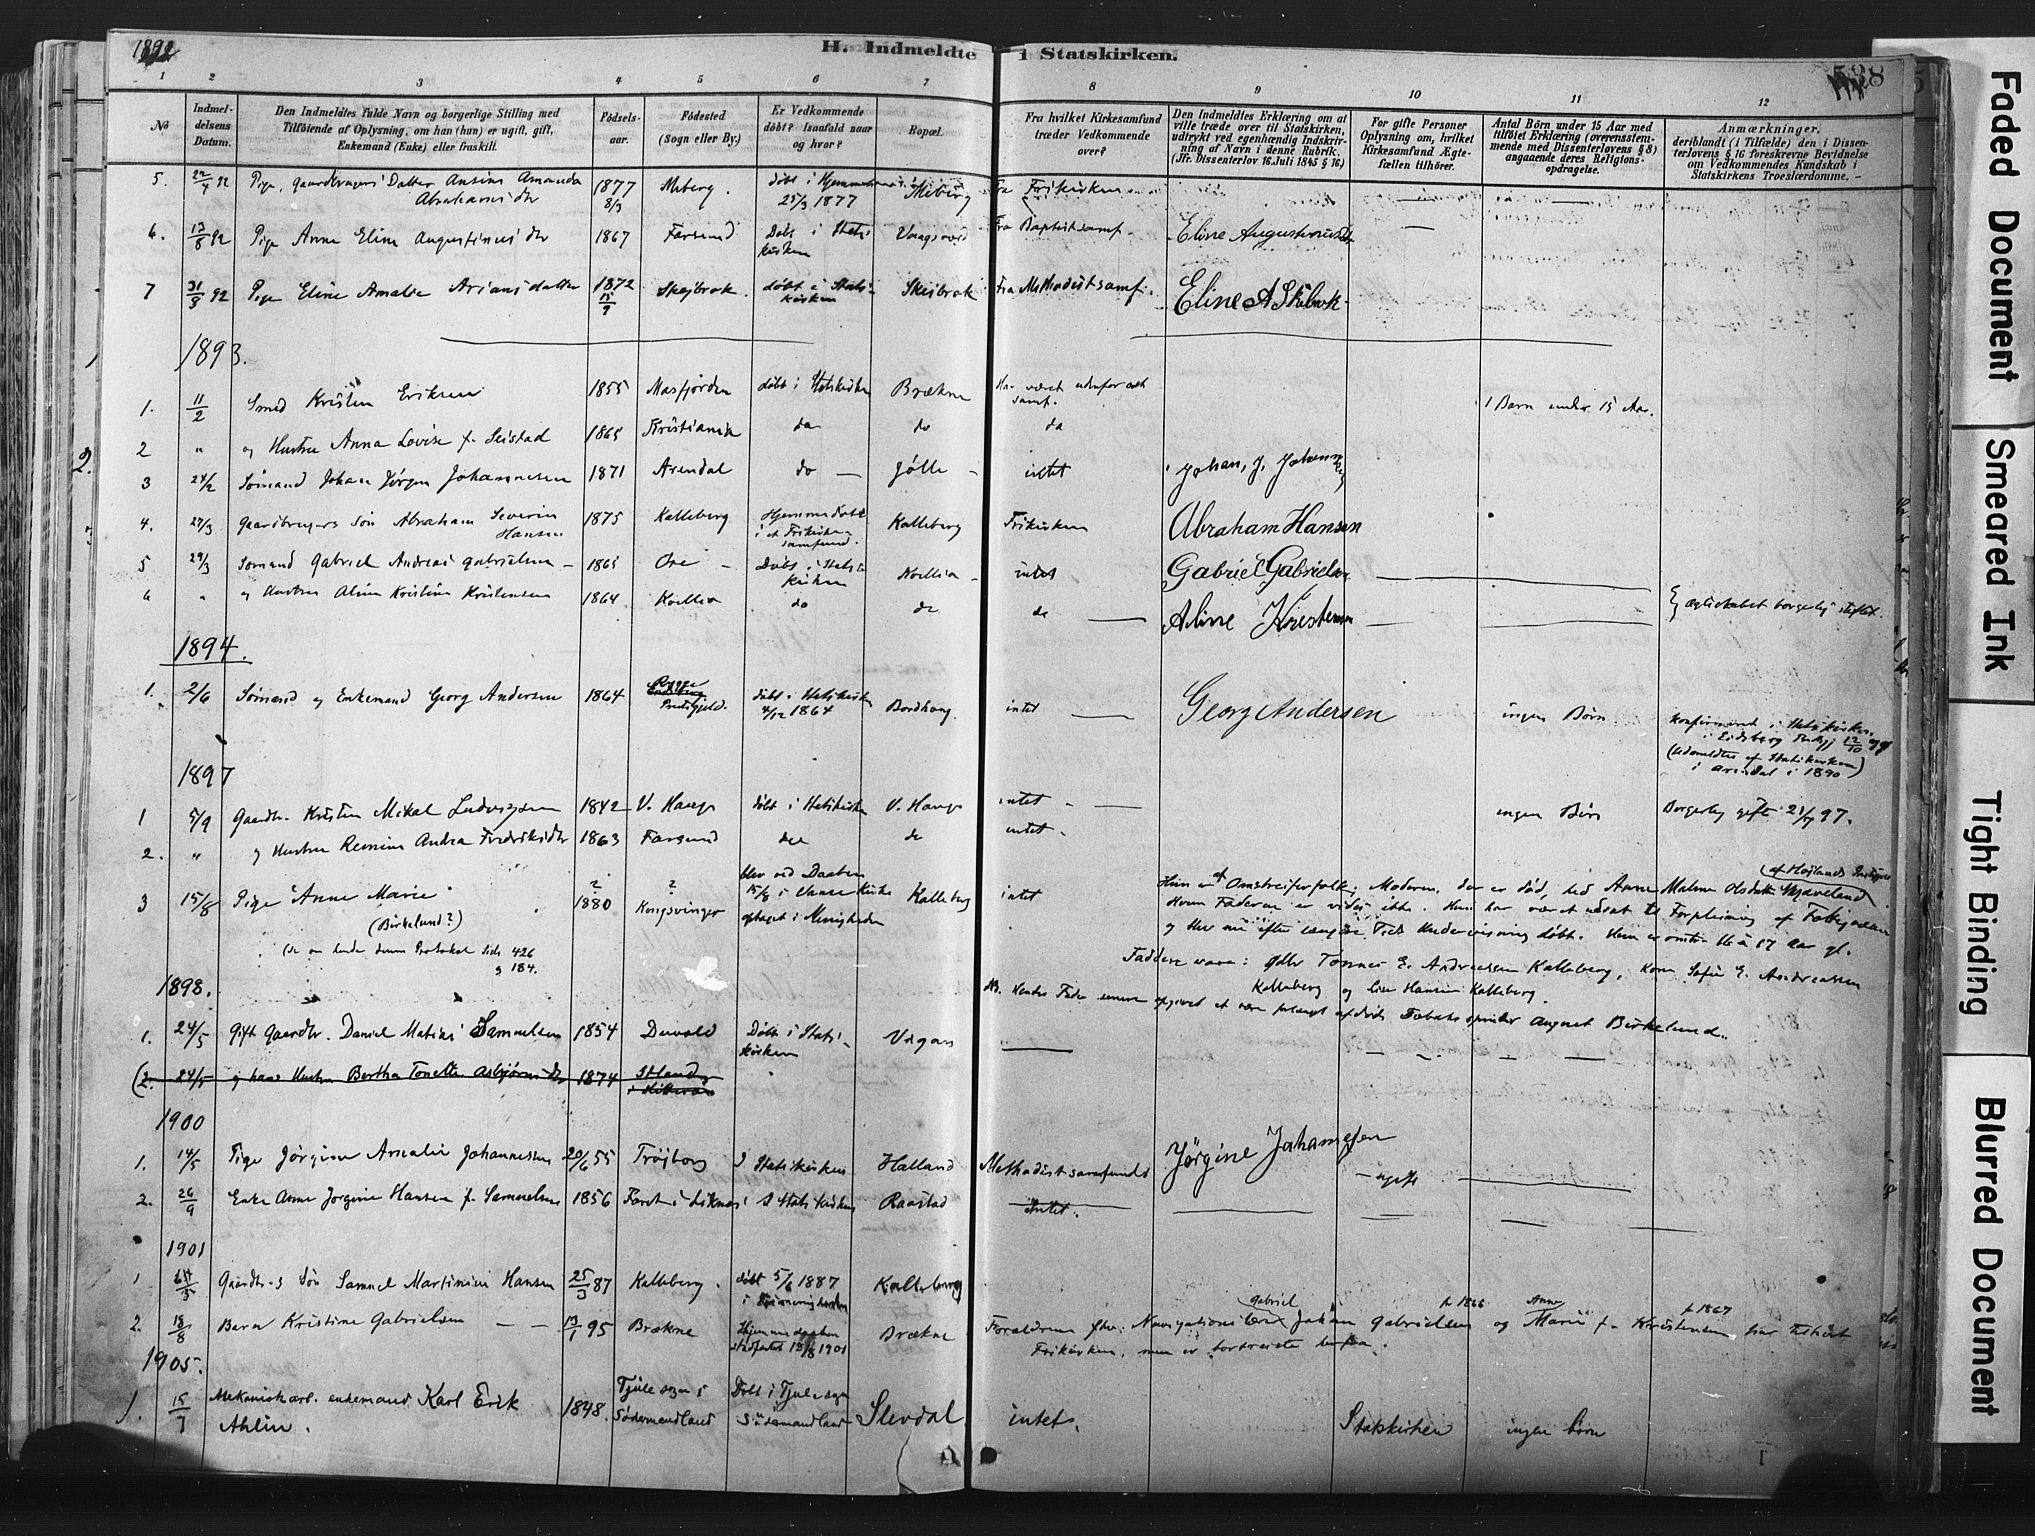 1892
H. Indmeldte i Statskirken.
588
1 2 3 4 5 6 7 8 9 10 11 12
No
Indmeldelsens Datum.
Den Indmeldtes fulde Navn og borgerlige Stilling med
Tilføiende af Oplysning, om han (hun) er ugift, gift,
Enkemand (Enke) eller fraskilt.
Fødselsaar.
Fødested
(Sogn eller By.)
Er Vedkommende
døbt? Isaafald naar
og hvor?
Bopæl.
Fra hvilket Kirkesamfund
træder Vedkommende
over?
Den Indmeldtes Erklæring om at
ville træde over til Statskirken,
udtrykt ved egenhændig Indskrivning af Navn i denne Rubrik.
(Jfr. Dissenterlov 16. Juli 1845 § 16.)
For gifte Personer
Oplysning om, hvilket
Kirkesamfund Ægtefællen tilhører.
Antal Børn under 15 Aar med
tilføiet Erklæring (overensstemmende med Dissenterlovens § 8)
angaaende deres Religionsopdragelse.
Anmærkninger,
deriblandt (i Tilfælde) den i Dissenterlovens § 16 foreskrevne Bevidnelse
om Vedkommendes Kundskab i
Statskirkens Troeslærdomme.
5. 22/4 92 Pige, Gaardbrugers Datter Ansine Amanda Abrahamsdtr 1877 8/3 døbt i Hjemmet 25/3 1877 Fra Frikirken
6. 17/8 92 Pige Anne Eline Augustinusdtr 1867 Farsund Døbt i Statskirken Fra Baptistsamf. Eline Augustinusdtr
7 31/8 92 Pige Eline Amalie Ariansdatter 1872 Skejbrok døbt i Statskirken Skeibrok Fra Methodistsamf. Eline A Skeibrok
1893.
1. 11/2 Smed Kristen Eriksen 1855 Masfjorden døbt i Statskirken Brækne Har været udenfor alt samf. 1 Barn under 15 Aar.
2 " og Hustru Anna Lovise f. Seistad 1865 Kristiania do do do
3 24/2 Sømand Johan Jørgen Johannesen 1871 Arendal do Jølle intet Johan, J. Johannesen
4. 27/3 Gaardbrugers Søn Abraham Severin Hansen 1875 Kalleberg Hjemmedøbt i et Frikirkesamfund. Kalleberg Frikirken Abraham Hansen
5 29/3 Sømand Gabriel Andreas Gabrielsen 1865 Ore Døbt i Statskirken intet Gabriel Gabrielsen
6 " og Hustru Aline Kristine Kristensen 1864 do do do Aline Kristensen Ægteskabet borgerlig stiftet.
1894.
1. 2/6 Sømand og Enkemand Georg Andersen 1864 Rygge Præstegjeld. døbt i Statskirken 4/12 1864 intet Georg Andersen ingen Børn konfirmeret i Statskirken i Eidsberg Prstgj 12/10 79 (Udmeldtes af Statskirken i Arendal i 1890
1897
1 5/9 Gaardbr. Kristen Mikal Ludvigsen 1842 V. Hauge døbt i Statskirken V. Hauge intet ingen Børn Borgerlig gift 21/7 97.
2. " og Hustru Andrea Fredriksdtr 1863 Farsund do do intet
3 15/8 Pige "Anne Marie" (Birkelund?) ? 1880 ? Kongsvinger blev ved Daaben 15/8 i Vanse Kirke optaget i Menigheden Kalleberg intet
(Se om hende denne Protokol Side 426 og 184.
Hun er af Omstreiferfolk. Moderen, der er død, hed Anne Malene Olsdatter Mjaveland (af Høilands Prstgj).
Hvem Faderen er vides ikke. Hun har været udsat til Forpleining af
og blev nu efter længere Tids Undervisning døbt. Hun er omtr. 16 à 17 Aar gl.
Faddere vare: Gdbr Tønnes E. Andreassen Kalleberg, Kone Sofie E. Andreassen
Kalleberg og Hansine Kalleberg.
NB. Hendes Fader senere opgivet at være forlængst afdøde Tobaksspinder August Birkelund.
1898.
1. 24/5 Gift Gaardbr. Daniel Matias Samuelsen 1854 Duvold Døbt i Statskirken Vigan
(2. 24/5 og hans Hustru Berthe Tonette Asbjørnsdtr 1874
1900
1. 14/5 Pige Jørgine Amalie Johannessen 20/6 55 Trøjborg I Statskirken Halland Methodistsamfundet Jørgine Johannesen ugift
2. 26/9 Enke Anne Jørgine Hansen f. Samuelsen 1856 I Statskirken Raastad Intet.
1901
1 Gaardbr-s Søn Samuel Martinius Hansen 25/3 87 Kalleberg døbt 5/6 1887 i Frimenigheden Kalleberg
2. 18/8 Barn Kristine Gabrielsen 13/1 95 Brækne Hjemmedaaben stadfæstet 18/8 1901 Brækne Forældrene fhv. Navigationslærer Gabriel Johan Gabrielsen f. 1866 og Anne Marie f. Kristensen f. 1867 har tilhørt Frikirken, men er bortreiste herfra.
1905.
1. 15/7 Mekaniskarb. enkemand Karl Erik Ahlin. 1848. Tjule sogn i Södermandland Døbt i Tjule sogn Södermandland Slevdal intet. Statskirken ingen børn
Faded Document
Smeared Ink
Tight Binding
Blurred Document